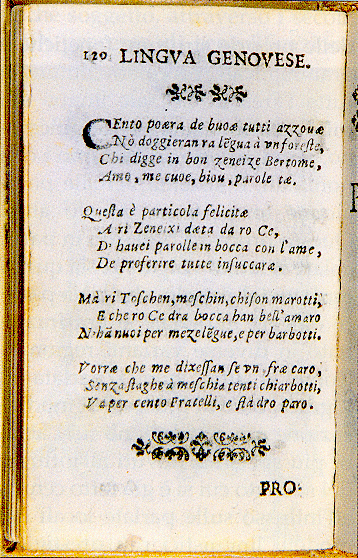 120 LINGVA GENOVESE.
CEnto poæra de buoæ tutti azzouæ
Nò doggieran ra lẽgua à vn foreste,
Chi digge in bon zeneize Bertome,
Amo, me cuoe, biou, parole tæ.
Questa è particola felicitæ
A ri Zeneixi dæta da ro Ce,
D'hauei parolle in bocca con l'ame,
De proferire tutte insuccaræ.
Mà ri Toschen, meschin, chi son marotti,
E che ro Ce dra bocca han bell'amaro
N'hã nuoi per meze lẽgue, e per barbotti.
Vorræ che me dixessan se vn fræ caro,
Senza staghe à meschiatenti chiarbotti,
Va per cento Fratelli, e stà dro paro.
PRO-